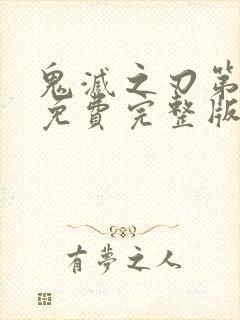 鬼滅之刃第
免費完整版
有夢之人